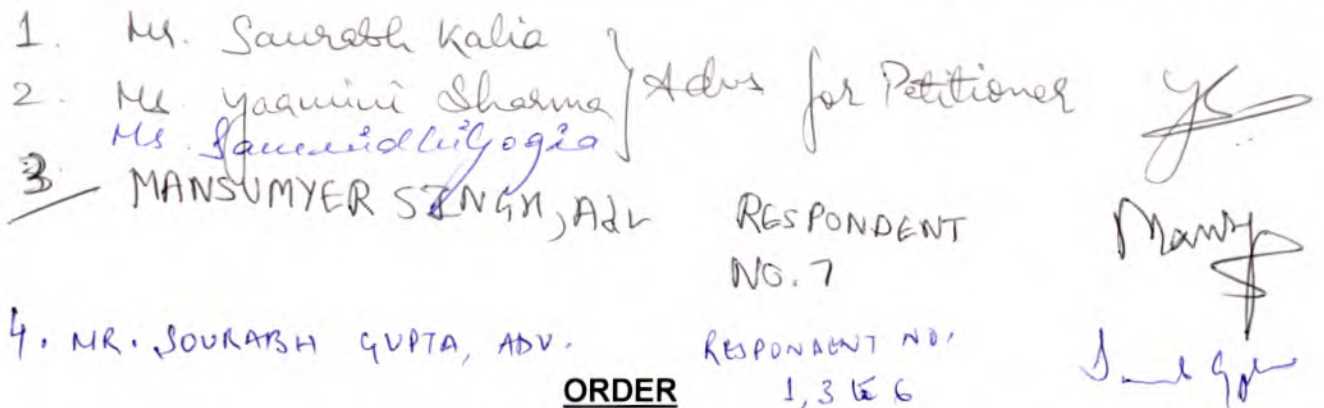 1. Mr. Saurabh Kalia
2. Ms. Yaamini Sharma } Advs for Petitioner
Ms. Yogia
3. MANSUMYER SINGH, Adv RESPONDENT
NO. 7
4. MR. SOURABH GUPTA, ADV. RESPONDENT NO.
1, 3 to 6
ORDER